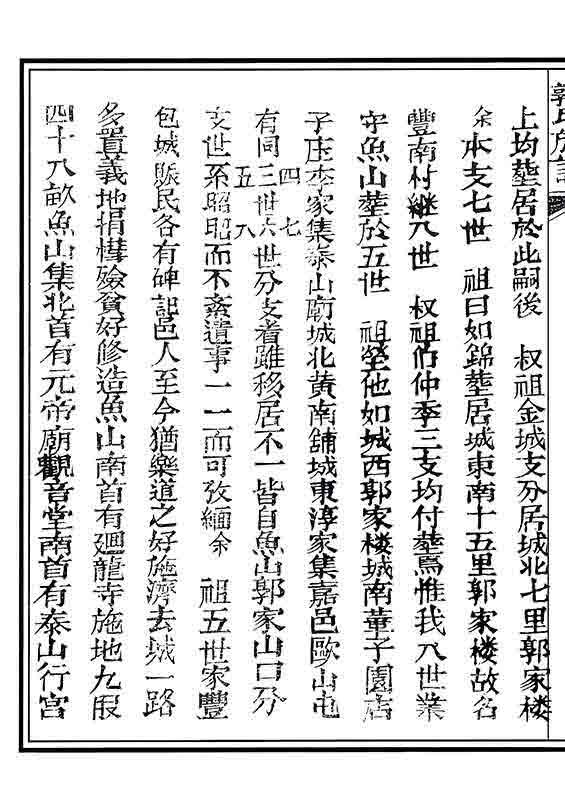 郭氏族譜
上均塟居於此嗣後　叔祖金城支分居城北七里郭家楼
余本支七世　祖曰如錦塟居城東南十五里郭家楼故名
豐南村継八世　叔祖伯仲季三支均付塟焉惟我八世業
守魚山塟於五世　祖塋他如城西郭家楼城南董子園店
子庄李家集泰山廟城北黄南舖城東淳家集嘉邑歐山屯
有同三四五世六七八世分支者雖移居不一皆自魚山郭家山口分
支世系昭昭而不紊遺事一一而可攷緬余　祖五世家豐
包城賑民各有碑記邑人至今猶樂道之好施濟去城一路
多置義地捐槥殮貧好修造魚山南首有廻龍寺施地九段
四十八畝魚山集北首有元帝廟觀音堂南首有泰山行宮